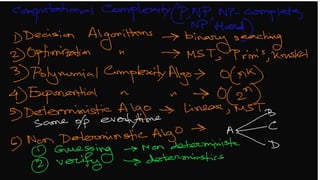 Computational Complexity (P, NP, NP-complete,
NP Hard)
1) Decision Algorithms → binary searching
2) Optimization " → MST, Prim's, Kruskal
3) Polynomial Complexity Algo → O(n^k)
4) Exponential " " → O(2^n)
5) Deterministic Algo → Linear, MST
Same o/p everytime
6) Non Deterministic Algo → A B C D
① Guessing → Non deterministic
② Verify → deterministics